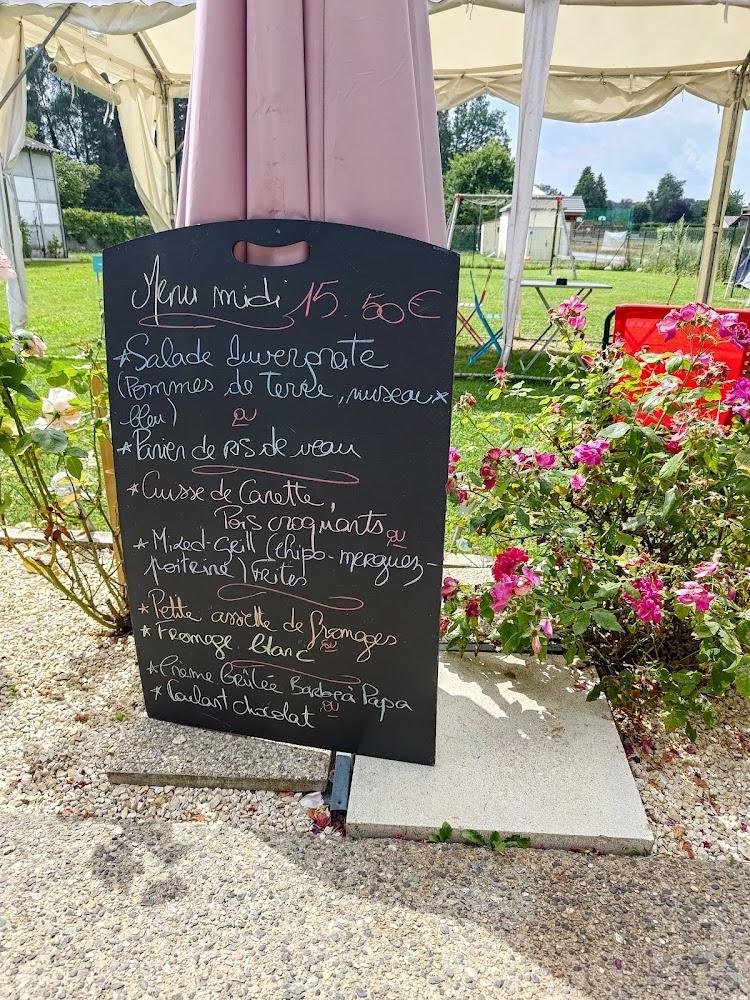 Menu midi 15.50€
*Salade Auvergnate
(Pommes de Terre, museau x
bleu)
ou
*Panier de ris de veau
*Cuisse de Canette,
Pois croquants
ou
*Mixed-Grill (chipo-merguez-
poitrine) Frites
*Petite assiette de fromages
ou
*Fromage blanc
*Crème Brûlée Barbe à Papa
ou
*Coulant chocolat